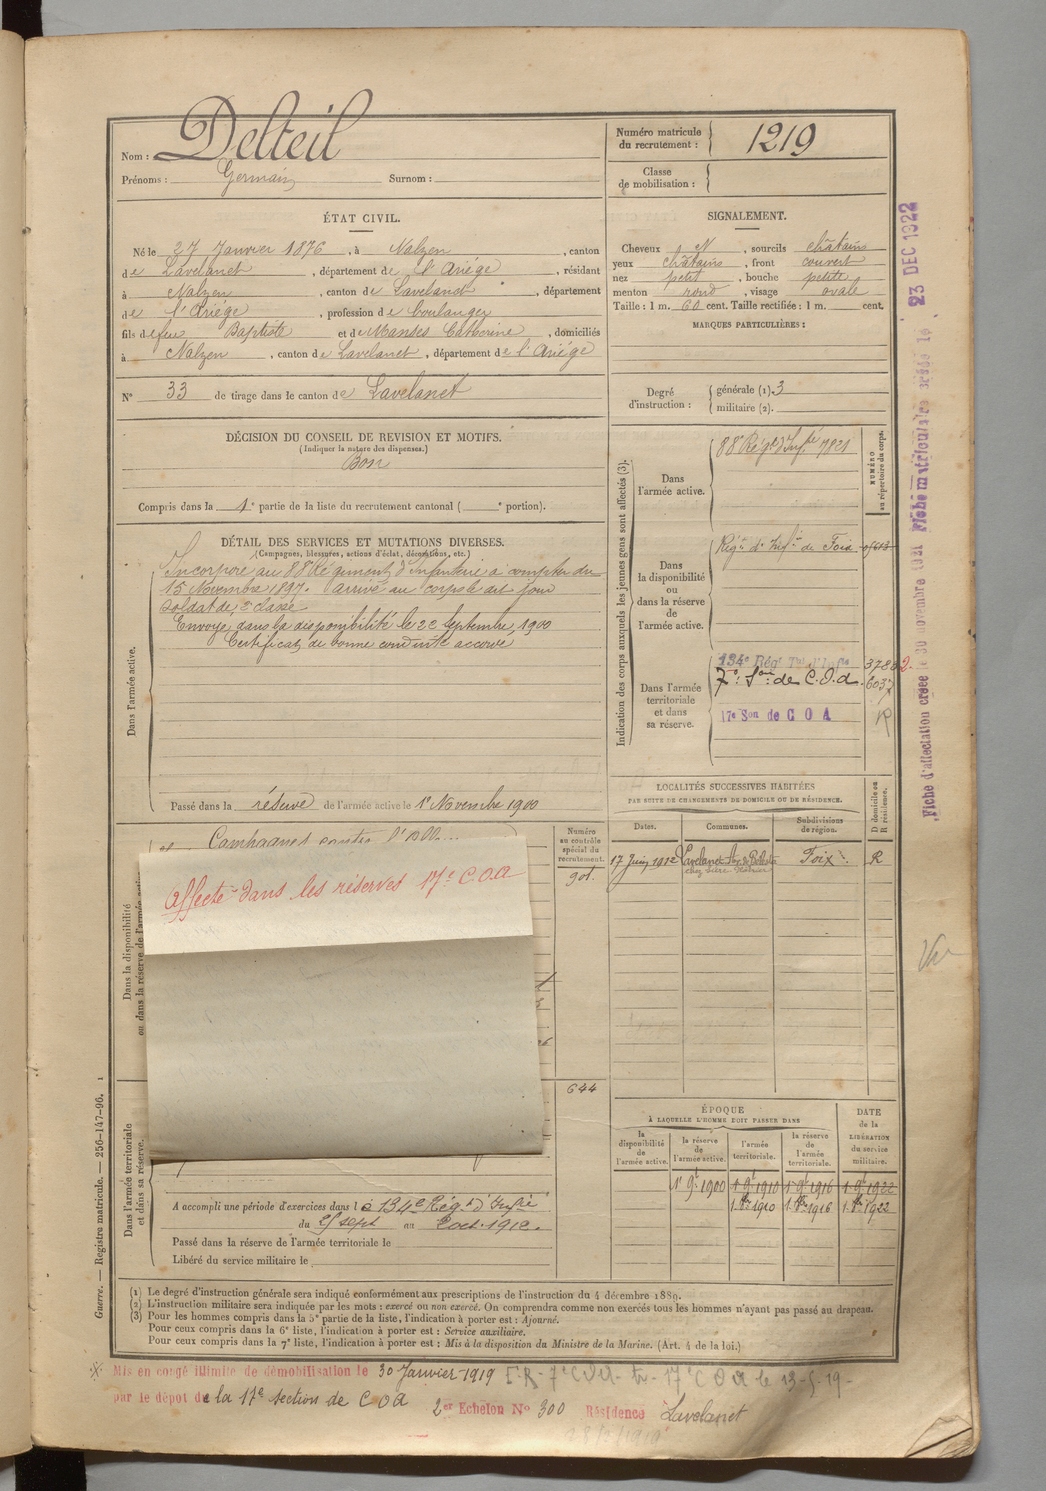 Nom : Delteil
Prénoms : Germain Surnom :
Numéro matricule
du recrutement : 1219
Classe
de mobilisation :
ÉTAT CIVIL.
Né le 27 Janvier 1876, à Nalzen, canton
de Lavelanet, département de l'Ariège, résidant
à Nalzen, canton de Lavelanet, département
de l'Ariège, profession de boulanger
fils de feu Baptiste et de Manses Catherine, domiciliés
à Nalzen, canton de Lavelanet, département de l'Ariège
N° 33 de tirage dans le canton de Lavelanet
SIGNALEMENT.
Cheveux N, sourcils châtains
yeux châtains, front couvert
nez petit, bouche petite
menton rond, visage ovale
Taille : 1 m. 60 cent. Taille rectifiée : 1 m. cent.
MARQUES PARTICULIÈRES :
Degré
d'instruction :
générale (1). 3
militaire (2).
DÉCISION DU CONSEIL DE REVISION ET MOTIFS.
(Indiquer la nature des dispenses.)
Bon
Compris dans la 1e partie de la liste du recrutement cantonal ( e portion).
DÉTAIL DES SERVICES ET MUTATIONS DIVERSES.
(Campagnes, blessures, actions d'éclat, décorations, etc.)
Dans l'armée active.
Incorporé au 88e Régiment d'Infanterie à compter du
15 Novembre 1897. arrivé au corps le dit jour
soldat de 2e classe
Envoyé dans la disponibilité le 22 Septembre 1900
Certificat de bonne conduite accordé
Passé dans la réserve de l'armée active le 1er Novembre 1900
Indication des corps auxquels les jeunes gens sont affectés (3).
NUMÉRO
au répertoire du corps.
Dans
l'armée active.
88e Régt d'Infie 7821
Dans
la disponibilité
ou
dans la réserve
de
l'armée active.
Régt d'Infie de Foix 0/613
Dans l'armée
territoriale
et dans
sa réserve.
134e Régt Tal d'Infie 3782
7e Son de C.O.A. 6037
17e Son de C O A R
LOCALITÉS SUCCESSIVES HABITÉES
PAR SUITE DE CHANGEMENTS DE DOMICILE OU DE RÉSIDENCE.
D domicile ou
R résidence.
Dates. Communes. Subdivisions
de région.
17 Juin 1912 Lavelanet Foix R
Dans la disponibilité
ou dans la réserve de l'armée active
Campagnes contre l'
Numéro
au contrôle
spécial du
recrutement.
901.
Affecté dans les réserves 17e C.O.A
644
Dans l'armée territoriale
et dans sa réserve.
A accompli une période d'exercices dans le 134e Régt d'Infie
du 25 sept au 2 oct. 1912.
Passé dans la réserve de l'armée territoriale le
Libéré du service militaire le
ÉPOQUE
À LAQUELLE L'HOMME DOIT PASSER DANS
DATE
de la
LIBÉRATION
du service
militaire.
la
disponibilité
de
l'armée active.
la réserve
de
l'armée active.
l'armée
territoriale.
la réserve
de
l'armée
territoriale.
1er 9bre 1900 1er 9bre 1910 1er 9bre 1916 1er 9bre 1922
1. 8bre 1910 1. 8bre 1916 1. 8bre 1922
(1) Le degré d'instruction générale sera indiqué conformément aux prescriptions de l'instruction du 4 décembre 1889.
(2) L'instruction militaire sera indiquée par les mots : exercé ou non exercé. On comprendra comme non exercés tous les hommes n'ayant pas passé au drapeau.
(3) Pour les hommes compris dans la 5e partie de la liste, l'indication à porter est : Ajourné.
Pour ceux compris dans la 6e liste, l'indication à porter est : Service auxiliaire.
Pour ceux compris dans la 7e liste, l'indication à porter est : Mis à la disposition du Ministre de la Marine. (Art. 4 de la loi.)
Guerre. — Registre matricule. — 256-147-96. 1
Mis en congé illimité de démobilisation le 30 Janvier 1919
par le dépôt de la 17e section de C O A
2er Echelon N° 300 Résidence Lavelanet
17e C O A le 13-5-19-
Fiche d'affectation créée le 30 novembre 1921 Fiche matriculaire créée le 23 DEC 1922